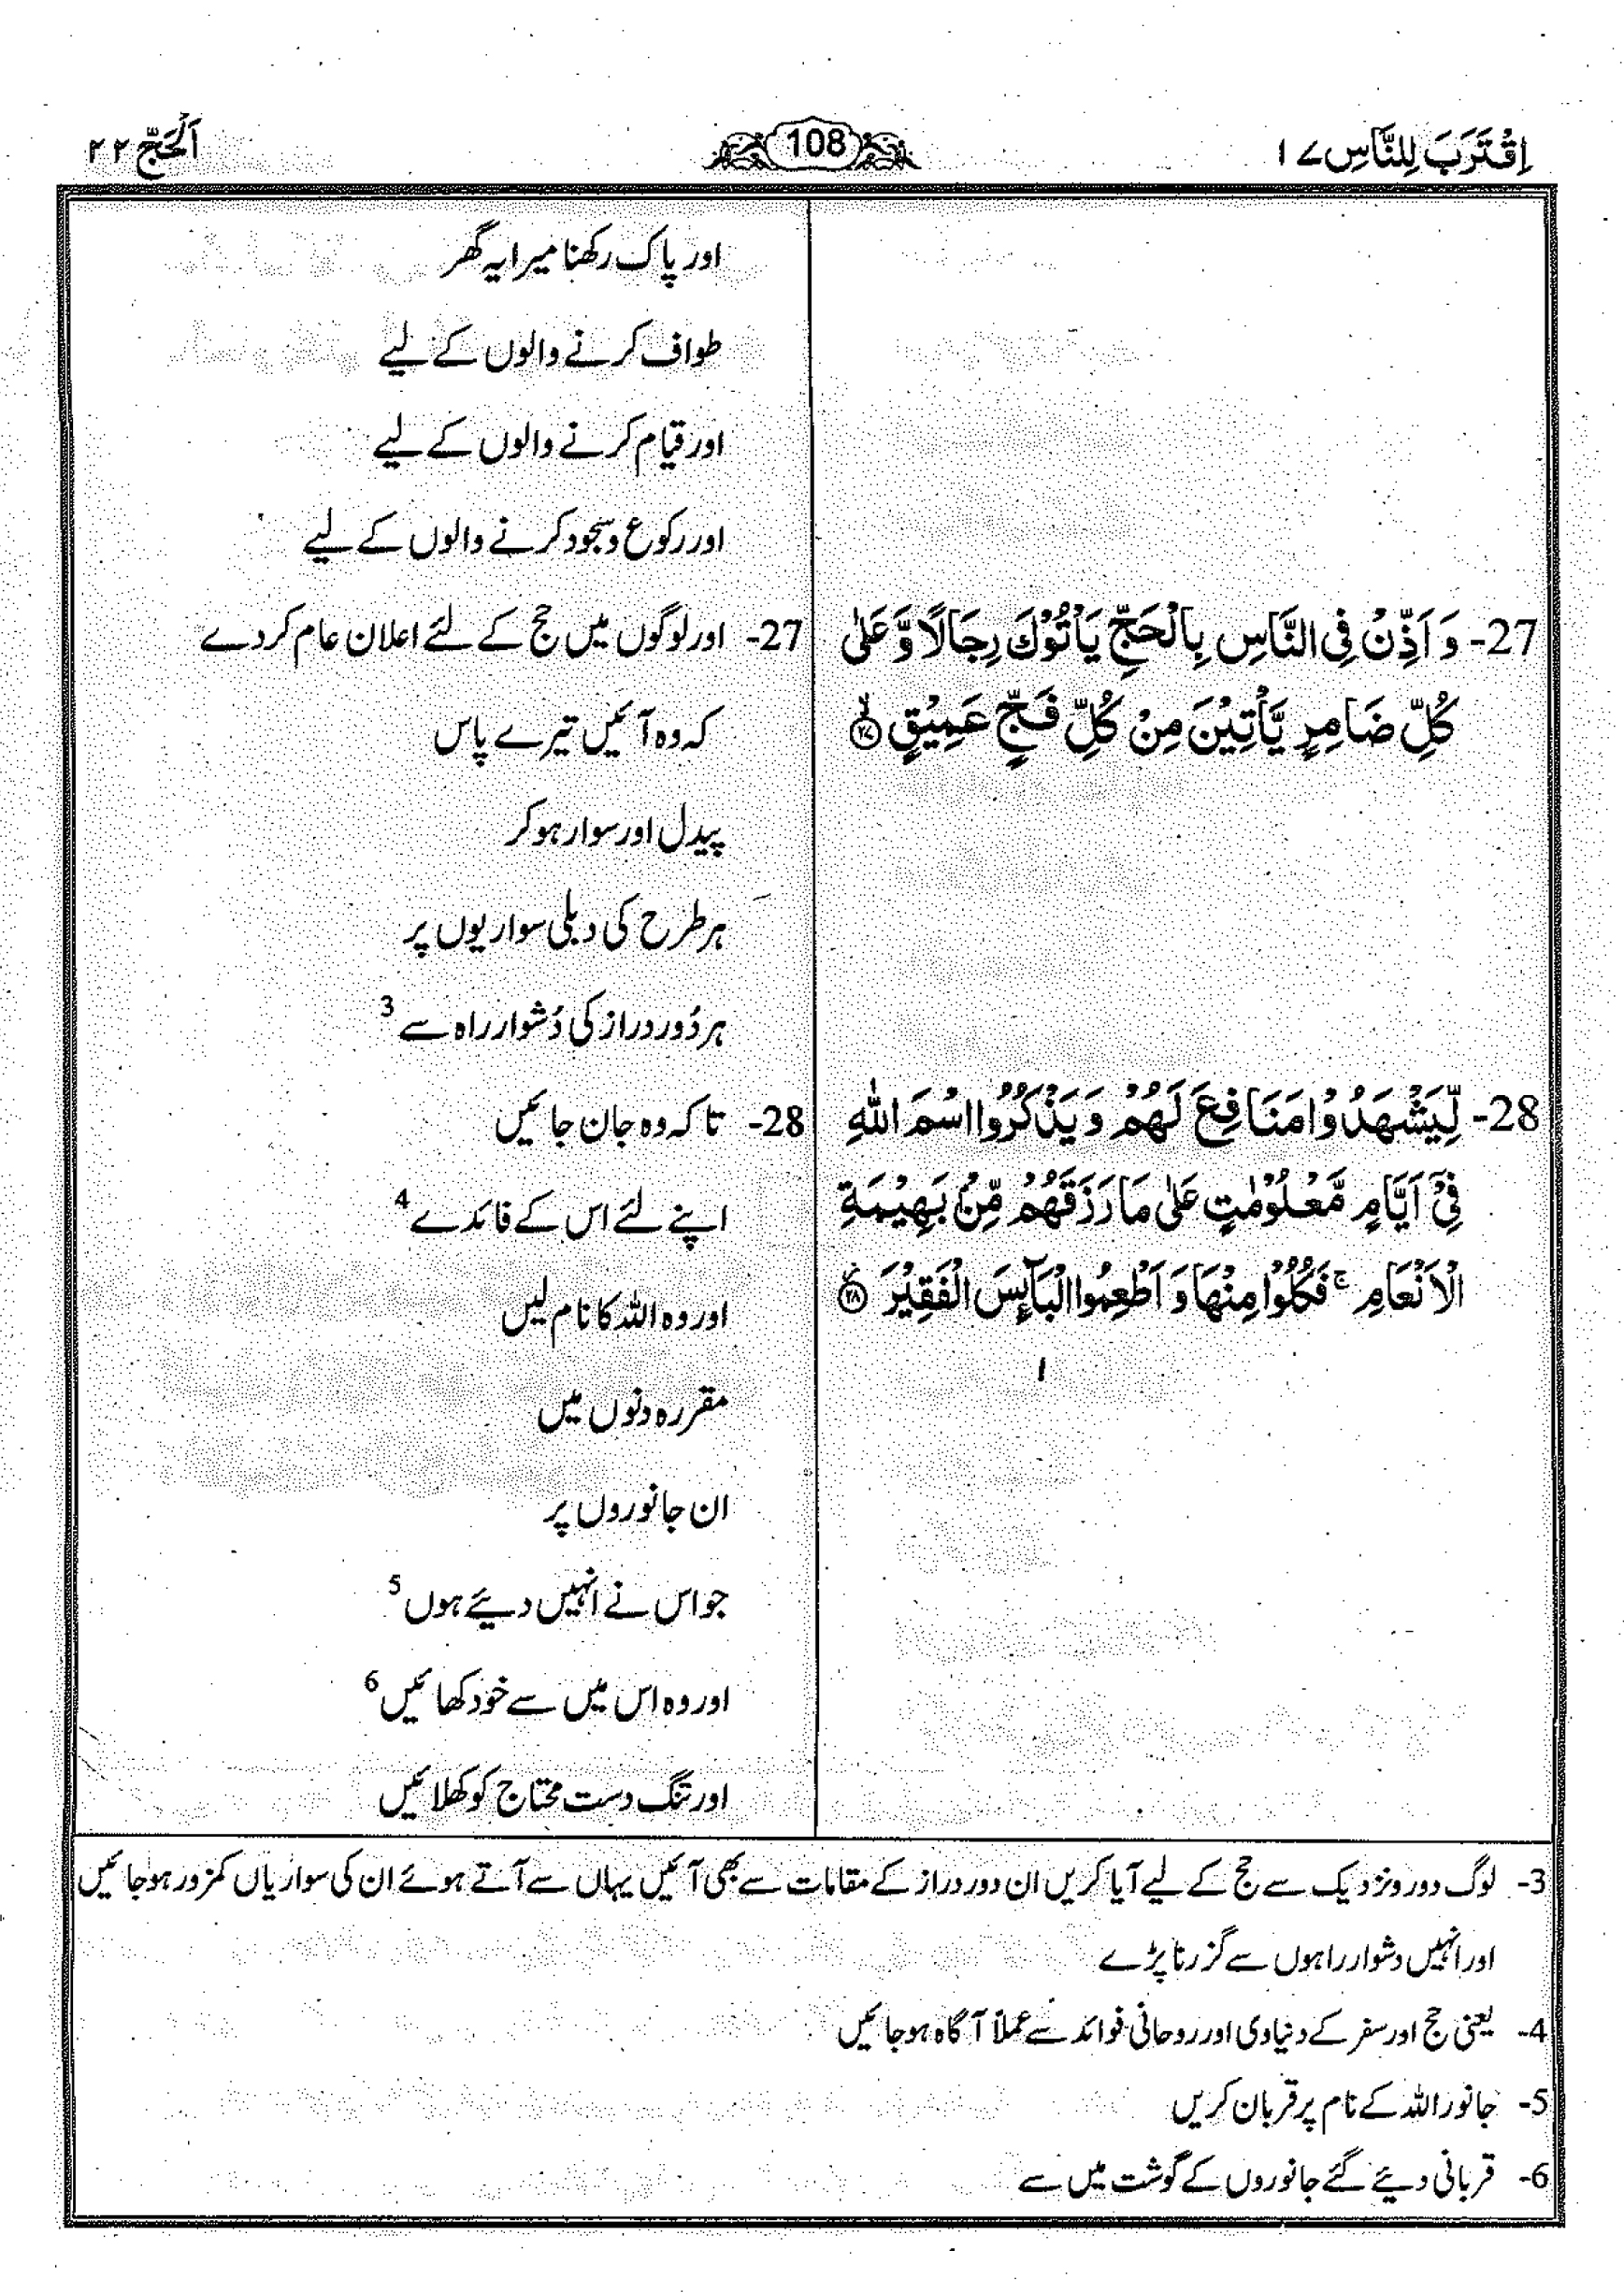 اِقْتَرَبَ لِلنَّاسِ ۱۷
108
اَلْحَجّ ۲۲
اور پاک رکھنا میرا یہ گھر
طواف کرنے والوں کے لیے
اور قیام کرنے والوں کے لیے
اور رکوع و سجود کرنے والوں کے لیے
27- وَ اَذِّنْ فِی النَّاسِ بِالْحَجِّ یَاْتُوْكَ رِجَالًا وَّ عَلٰی
كُلِّ ضَامِرٍ یَّاْتِیْنَ مِنْ كُلِّ فَجٍّ عَمِیْقٍ ۙ﴿۲۷﴾
27- اور لوگوں میں حج کے لئے اعلان عام کر دے
کہ وہ آئیں تیرے پاس
پیدل اور سوار ہو کر
ہر طرح کی دبلی سواریوں پر
ہر دُور دراز کی دُشوار راہ سے 3
28- لِّیَشْهَدُوْا مَنَافِعَ لَهُمْ وَ یَذْكُرُوا اسْمَ اللّٰهِ
فِیْۤ اَیَّامٍ مَّعْلُوْمٰتٍ عَلٰی مَا رَزَقَهُمْ مِّنْۢ بَهِیْمَةِ
الْاَنْعَامِ ۚ فَكُلُوْا مِنْهَا وَ اَطْعِمُوا الْبَآئِسَ الْفَقِیْرَ ﴿۲۸﴾
28- تاکہ وہ جان جائیں
اپنے لئے اس کے فائدے 4
اور وہ اللہ کا نام لیں
مقررہ دنوں میں
ان جانوروں پر
جو اس نے انہیں دیئے ہوں 5
اور وہ اس میں سے خود کھائیں 6
اور تنگ دست محتاج کو کھلائیں
3- لوگ دور و نزدیک سے حج کے لیے آیا کریں ان دور دراز کے مقامات سے بھی آئیں یہاں سے آتے ہوئے ان کی سواریاں کمزور ہو جائیں
اور انہیں دشوار راہوں سے گزرنا پڑے
4- یعنی حج اور سفر کے دنیاوی اور روحانی فوائد سے عملاً آگاہ ہو جائیں
5- جانور اللہ کے نام پر قربان کریں
6- قربانی دیئے گئے جانوروں کے گوشت میں سے